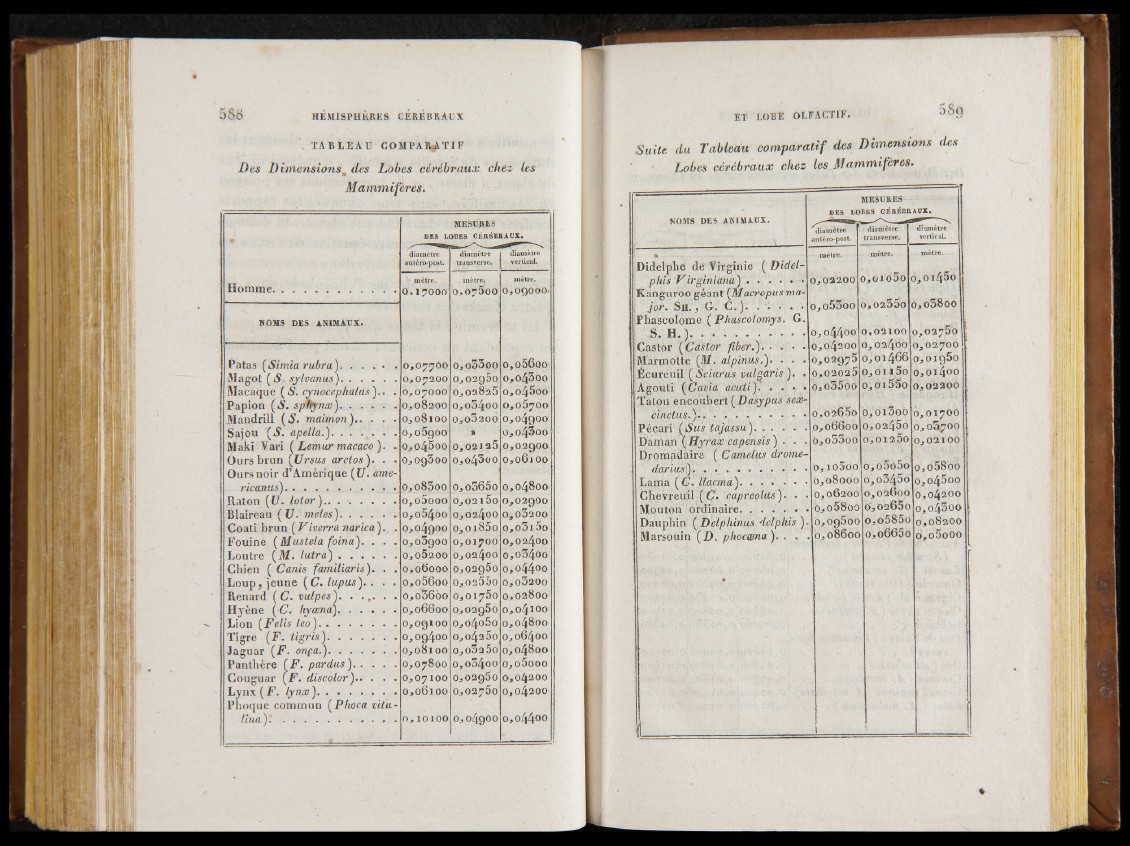 588 HÉMISPHÈRES CÉRÉBRAUX
TABLEAU COMPARATIF
Des Dimensions des Lobes cérébraux chez les
Mammifères.
MESURES
DES LOBES CÉRÉBRAUX.
diamètre antéro-post. diamètre transverse. diamètre vertical.
mètre. mètre. mètre.
Homme. . . . . . . . . . . . 0,17000 0,07500 0,09000
NOMS DES ANIMAUX.
Patas (Simia rubra). . . . . . 0,07700 0,03300 0,05600
Magot (S. sylvanus). . . . . . 0,07200 0,02950 0,04300
Macaque (S. cynocephalus). . . 0,07000 0,02825 0,04500
Papion (S. sphynx). . . . . . 0,08200 0,03400 0,05700
Mandrill (S. maimon). . . . . 0,08100 0,03200 0,04900
Sajou (S. apella.). . . . . . . 0,05900 » 0,04300
Maki Vari (Lemur macaco). . 0,04500 0,02125 0,02900
Ours brun (Ursus arctos). . . 0,09300 0,04300 0,06100
Ours noir d'Amérique (U. ame-
ricanus). . . . . . . . . . . 0,08300 0,03650 0,04800
Raton (U. lotor). . . . . . . 0,05000 0,02150 0,02900
Blaireau (U. meles). . . . . . 0,05400 0,02400 0,03200
Coati brun (Viverra narica). . 0,04900 0,01850 0,03150
Fouine (Mustela foina). . . . 0,03900 0,01700 0,02400
Loutre (M. lutra) . . . . . . 0,05200 0,02400 0,03400
Chien (Canis familiaris). . . 0,06000 0,02950 0,04400
Loup, jeune (C. lupus). . . . 0,05600 0,02550 0,03200
Renard (C. vulpes). . . . . . 0,03600 0,01750 0,02800
Hyène (C. hyæna). . . . . . 0,06600 0,02950 0,04100
Lion (Felis leo). . . . . . . . 0,09100 0,04050 0,04800
Tigre (F. tigris). . . . . . . 0,09400 0,04250 0,06400
Jaguar (F. onça.). . . . . . . 0,08100 0,03250 0,04800
Panthère (F. pardus). . . . . 0,07800 0,03400 0,05000
Couguar (F. discolor). . . . . 0,07100 0,02950 0,04200
Lynx (F. lynx). . . . . . . . 0,06100 0,02750 0,04200
Phoque commun (Phoca vitu-
lina). . . . . . . . . . . . 0,10100 0,04900 0,04400
ET LOBE OLFACTIF. 589
Suite du Tableau comparatif des Dimensions des
Lobes cérébraux chez les Mammifères.
NOMS DES ANIMAUX.
MESURES
DES LOBES CÉRÉBRAUX.
diamètre antéro-post. diamètre transverse. diamètre vertical.
mètre. mètre. mètre.
Didelphe de Virginie (Didel-
phis Virginiana) . . . . . . 0,02200 0,01050 0,01450
Kanguroo géant (Macropus ma-
jor. SH., G. C.). . . . . . 0,05300 0,02350 0,03800
Phascolome (Phascolomys. G.
S. H.). . . . . . . . . . . 0,04400 0,02100 0,02750
Castor (Castor fiber.). . . . . 0,04200 0,02400 0,02700
Marmotte (M. alpinus.). . . . 0,02975 0,01466 0,01950
Écureuil (Sciurus vulgaris). . 0,02025 0,01150 0,01400
Agouti (Cavia acuti). . . . . 0,03500 0,01550 0,02200
Tatou encoubert (Dasypus sex-
cinctus.). . . . . . . . . . 0,02650 0,01300 0,01700
Pécari (Sus tajassu). . . . . . 0,06600 0,02450 0,03700
Daman (Hyrax capensis) . . . 0,03300 0,01250 0,02100
Dromadaire (Camelus drome-
darius). . . . . . . . . . . 0,10500 0,05050 0,05800
Lama (C. llacma). . . . . . . 0,08000 0,03450 0,04500
Chevreuil (C. capreolus). . . 0,06200 0,02600 0,04200
Mouton ordinaire. . . . . . . 0,05800 0,02650 0,04300
Dauphin (Delphinus delphis). 0,09500 0,05850 0,08200
Marsouin (D. phocæna). . . . 0,08600 0,06650 0,05000